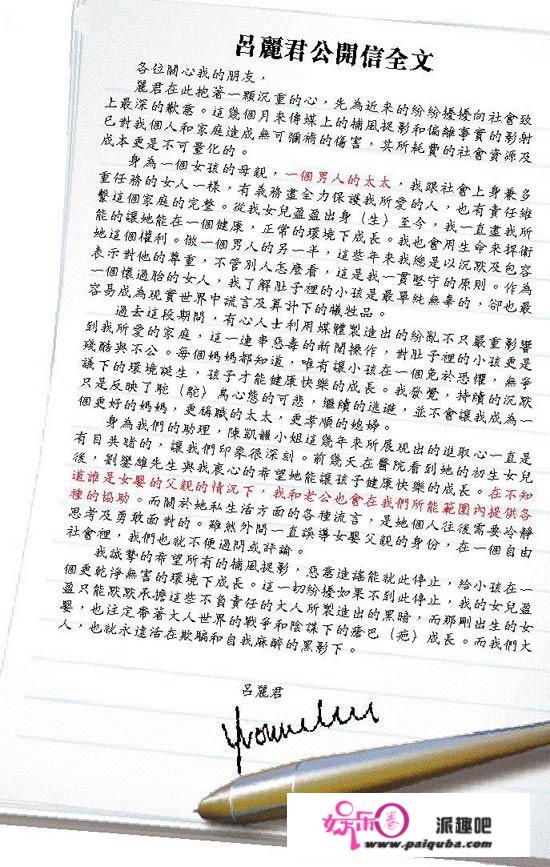 呂麗君公開信全文
各位關心我的朋友，
麗君在此抱著一顆沉重的心，先為近來的紛紛擾擾向社會致
上最深的歉意。這幾個月來傳媒上的捕風捉影和偏離事實的影射
已對我個人和家庭造成無可彌補的傷害，其所耗費的社會資源及
成本更是不可量化的。
身為一個女孩的母親，一個男人的太太，我跟社會上身兼多
重任務的女人一樣，有義務盡全力保護我所愛的人，也有責任維
繫這個家庭的完整。從我女兒盈盈出身（生）至今，我一直盡我所
能的讓她能在一個健康，正常的環境下成長。我也會用生命來捍衛
她這個權利。做一個男人的另一半，這些年來我總是以沉默及包容
表示對他的尊重，不管別人怎麼看，這是我一貫堅守的原則。作為
一個懷過胎的女人，我了解肚子裡的小孩是最單純無毒的，卻也最
容易成為現實世界中謊言及算計下的犧牲品。
過去這段期間，有心人士利用媒體製造出的紛亂不只嚴重影響
到我所愛的家庭，這一連串惡毒的新聞操作，對肚子裡的小孩更是
殘酷與不公。每個媽媽都知道，唯有讓小孩在一個免於恐懼，無爭
議下的環境誕生，孩子才能健康快樂的成長。我發覺，持續的沉默
只是反映了駝（鴕）鳥心態的可悲，繼續的逃避，並不會讓我成為一
個更好的媽媽，更稱職的太太，更孝順的媳婦。
身為我們的助理，陳凱韻小姐這幾年來所展現出的進取心一直是
有目共睹的，讓我們印象很深刻。前幾天在醫院看到她的初生女兒
後，劉鑾雄先生與我衷心的希望她能讓孩子健康快樂的成長。在不知
道誰是女嬰的父親的情況下，我和老公也會在我們所能範圍內提供各
種的協助。而關於她私生活方面的各種流言，是她個人往後需要冷靜
思考及勇敢面對的。雖然外間一直誤導女嬰父親的身份，在一個自由
社會裡，我們也就不便過問或評論。
我誠摯的希望所有的捕風捉影，惡意造謠能就此停止，給小孩在一
個更乾淨無害的環境下成長。這一切紛擾如果不到此停止，我的女兒盈
盈只能默默承擔這些不負責任的大人所製造出的黑暗，而那剛出生的女
嬰，也注定帶著大人世界的戰爭和陰謀下的瘡巴（疤）成長。而我們大
人，也就永遠活在欺騙和自我麻醉的黑影下。
呂麗君
娛乐圈
派趣吧
www.paiquba.com